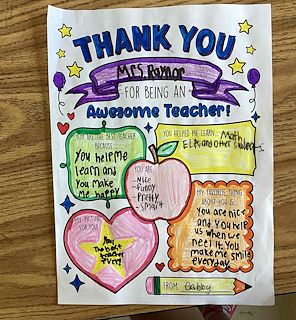 THANK YOU
Mrs. Raynor
FOR BEING AN
Awesome Teacher!
YOU ARE THE BEST TEACHER
BECAUSE...
You help me
learn and
You make
me happy
YOU HELPED ME LEARN...
Math,
ELA, and other subjects
YOU ARE...
Nice
-funny
Pretty
-smart
MY FAVORITE THING
ABOUT YOU IS...
You are nice
and you help
us when we
need it. You
make me smile
everyday
MY PICTURE
FOR YOU!
You
The best
teacher
Ever!
FROM: Gabby